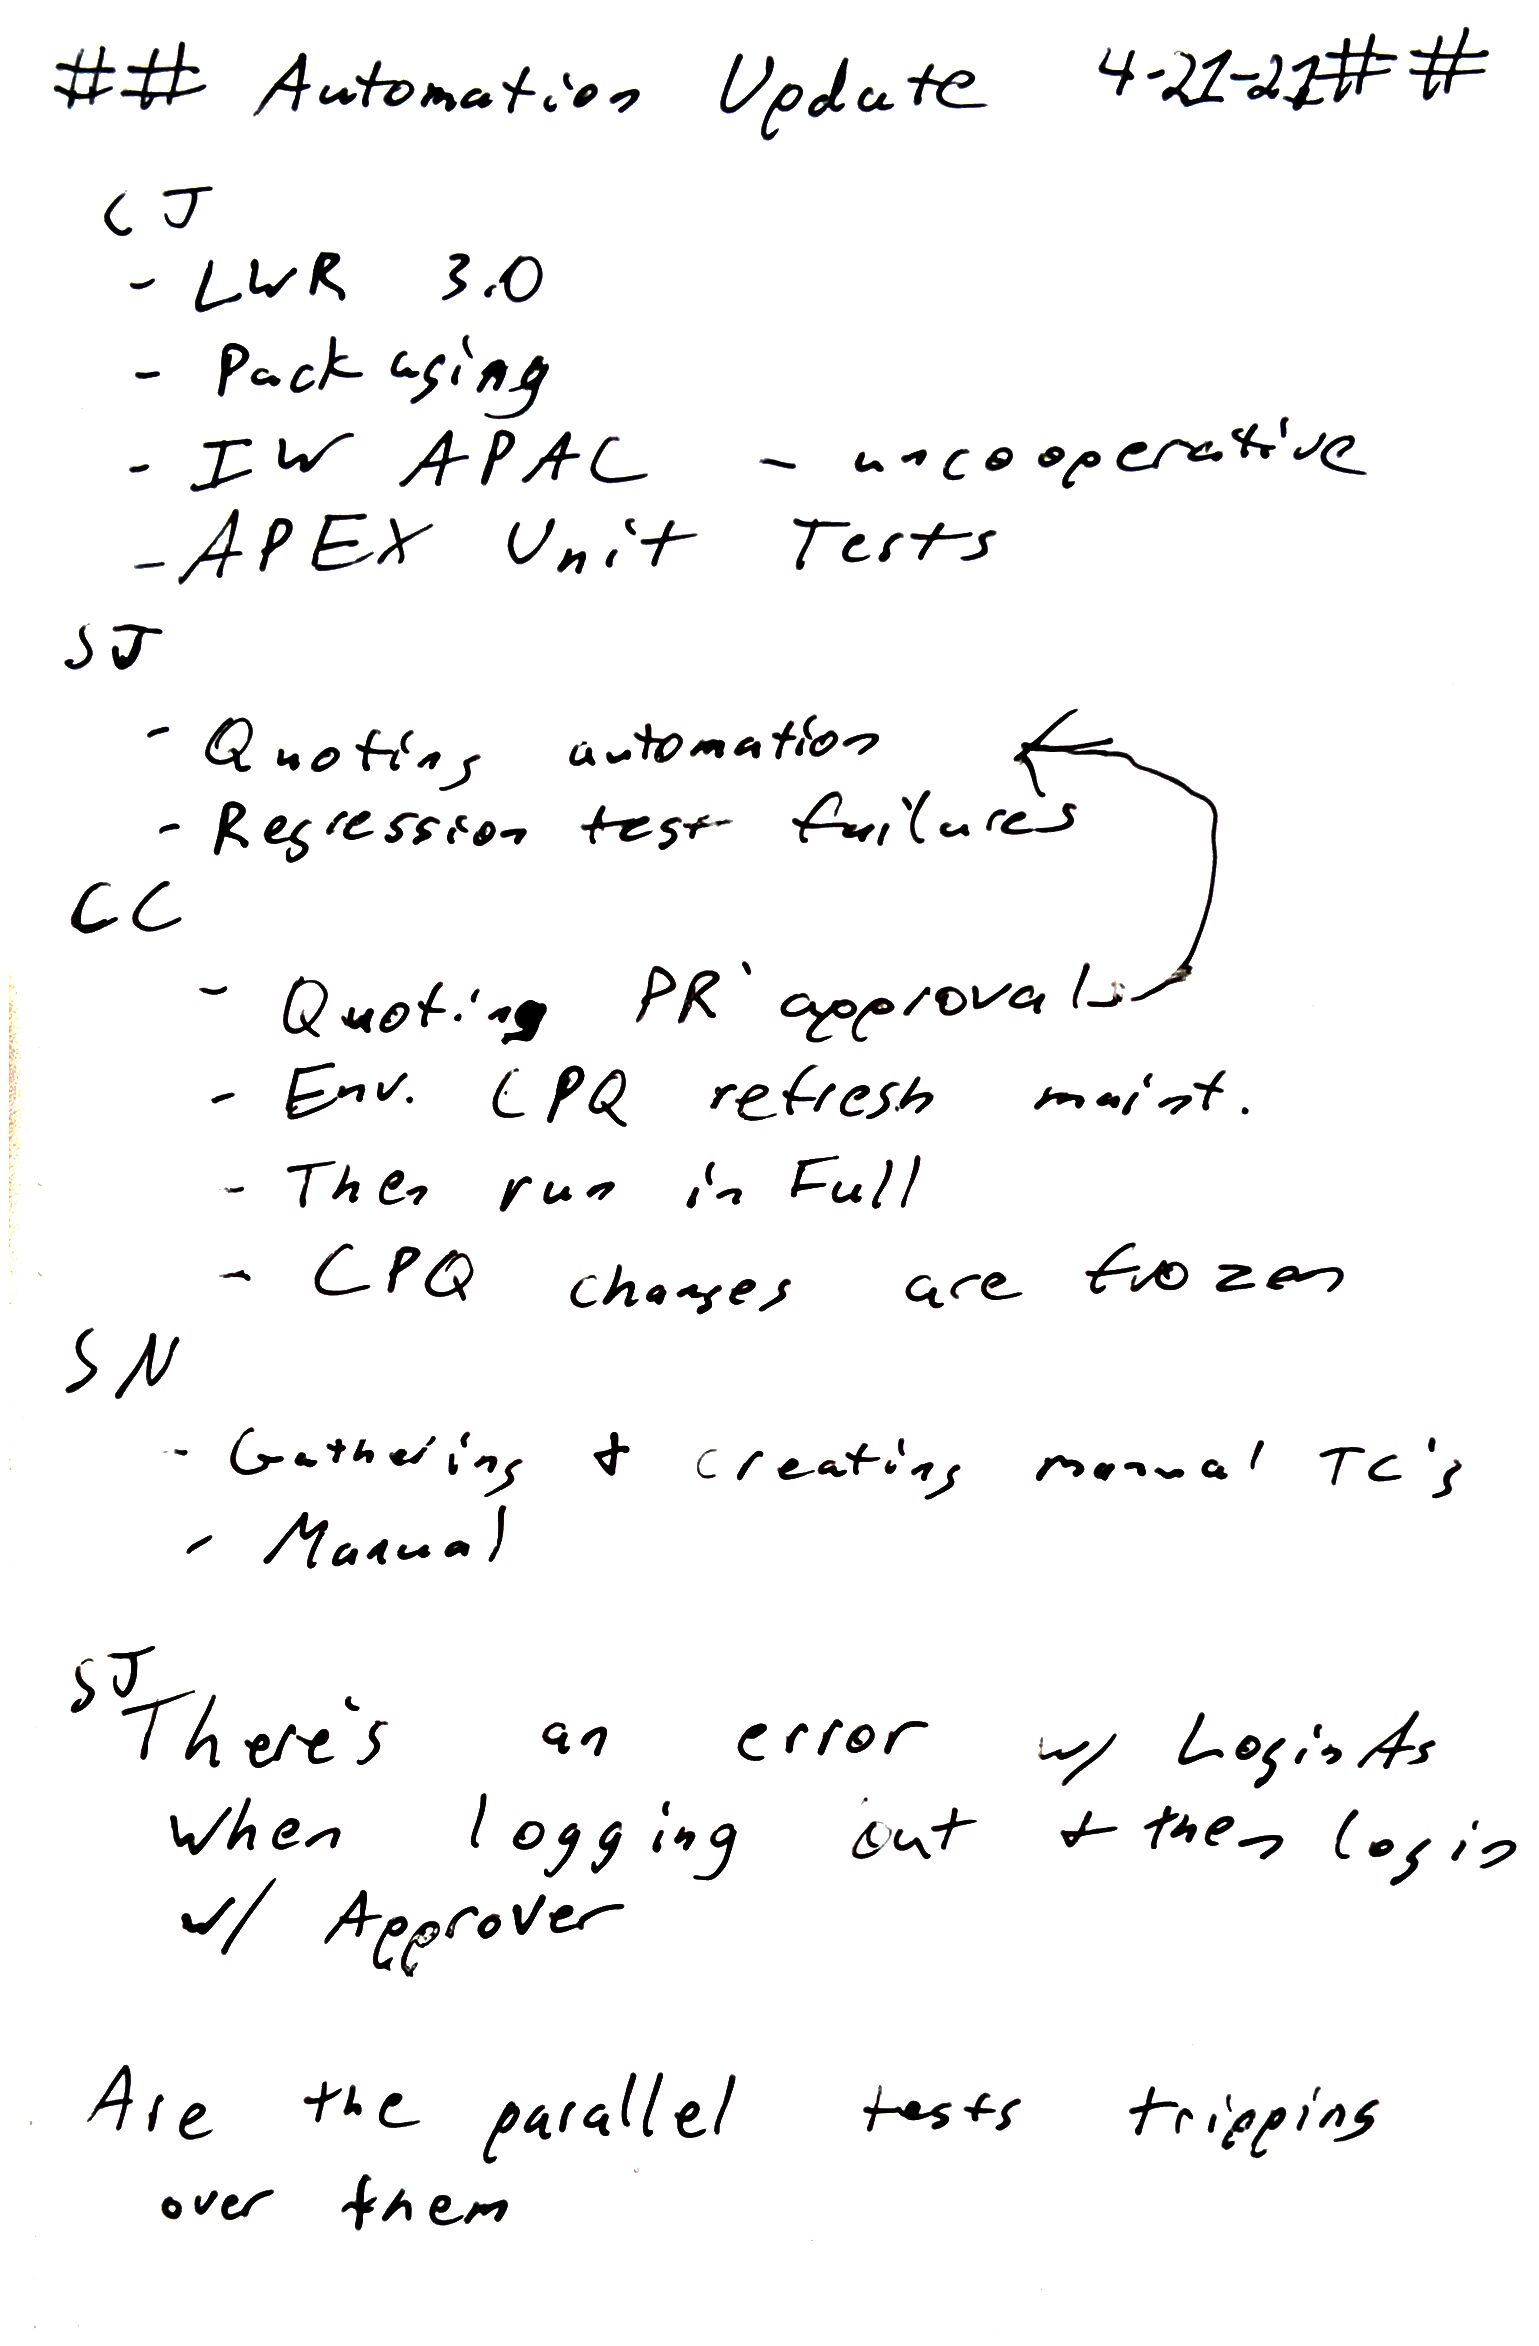 ## Automation Update 4-21-21##
CJ
- LWR 3.0
- Packaging
- IW APAC - uncooperative
- APEX Unit Tests
SJ
- Quoting automation
- Regression test failures
CC
- Quoting PR approvals
- Env. CPQ refresh maint.
- Then run in Full
- CPQ changes are frozen
SN
- Gathering & creating manual TC's
- Manual
SJ
There's an error w/ LoginAs
when logging out & then login
w/ Approver
Are the parallel tests tripping
over them